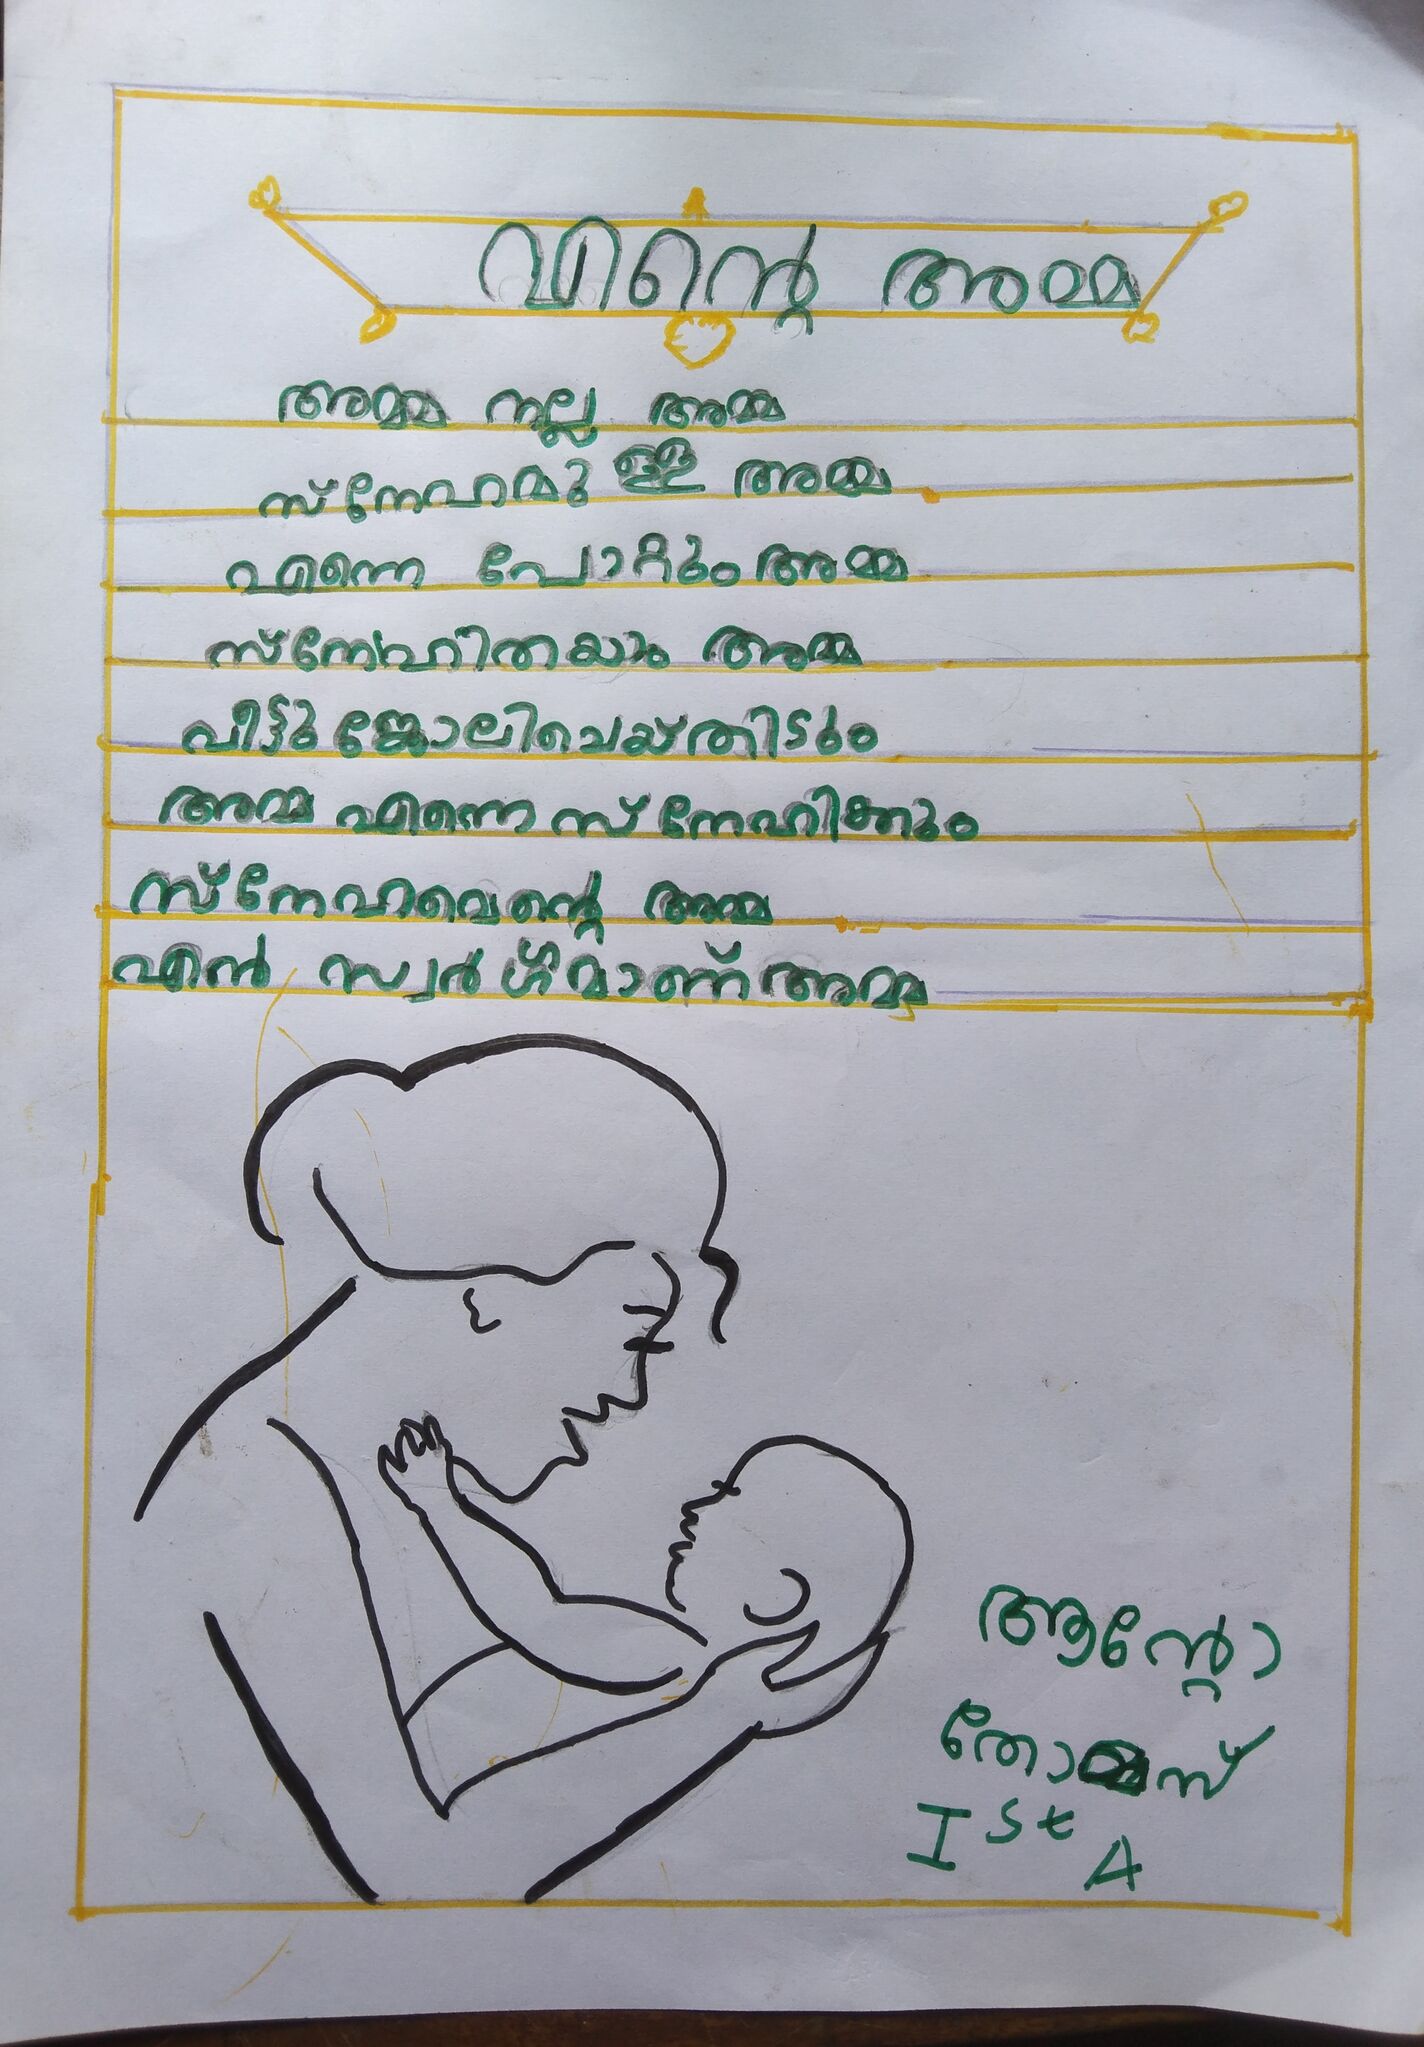 എന്റെ അമ്മ
അമ്മ നല്ല അമ്മ
സ്നേഹമുള്ള അമ്മ
എന്നെ പോറ്റും അമ്മ
സ്നേഹിതയാം അമ്മ
വീട്ടുജോലിചെയ്തിടും
അമ്മ എന്നെ സ്നേഹിക്കും
സ്നേഹമെന്റെ അമ്മ
എൻ സ്വർഗ്ഗമാണ് അമ്മ
ആന്റോ
തോമസ്
Ist A